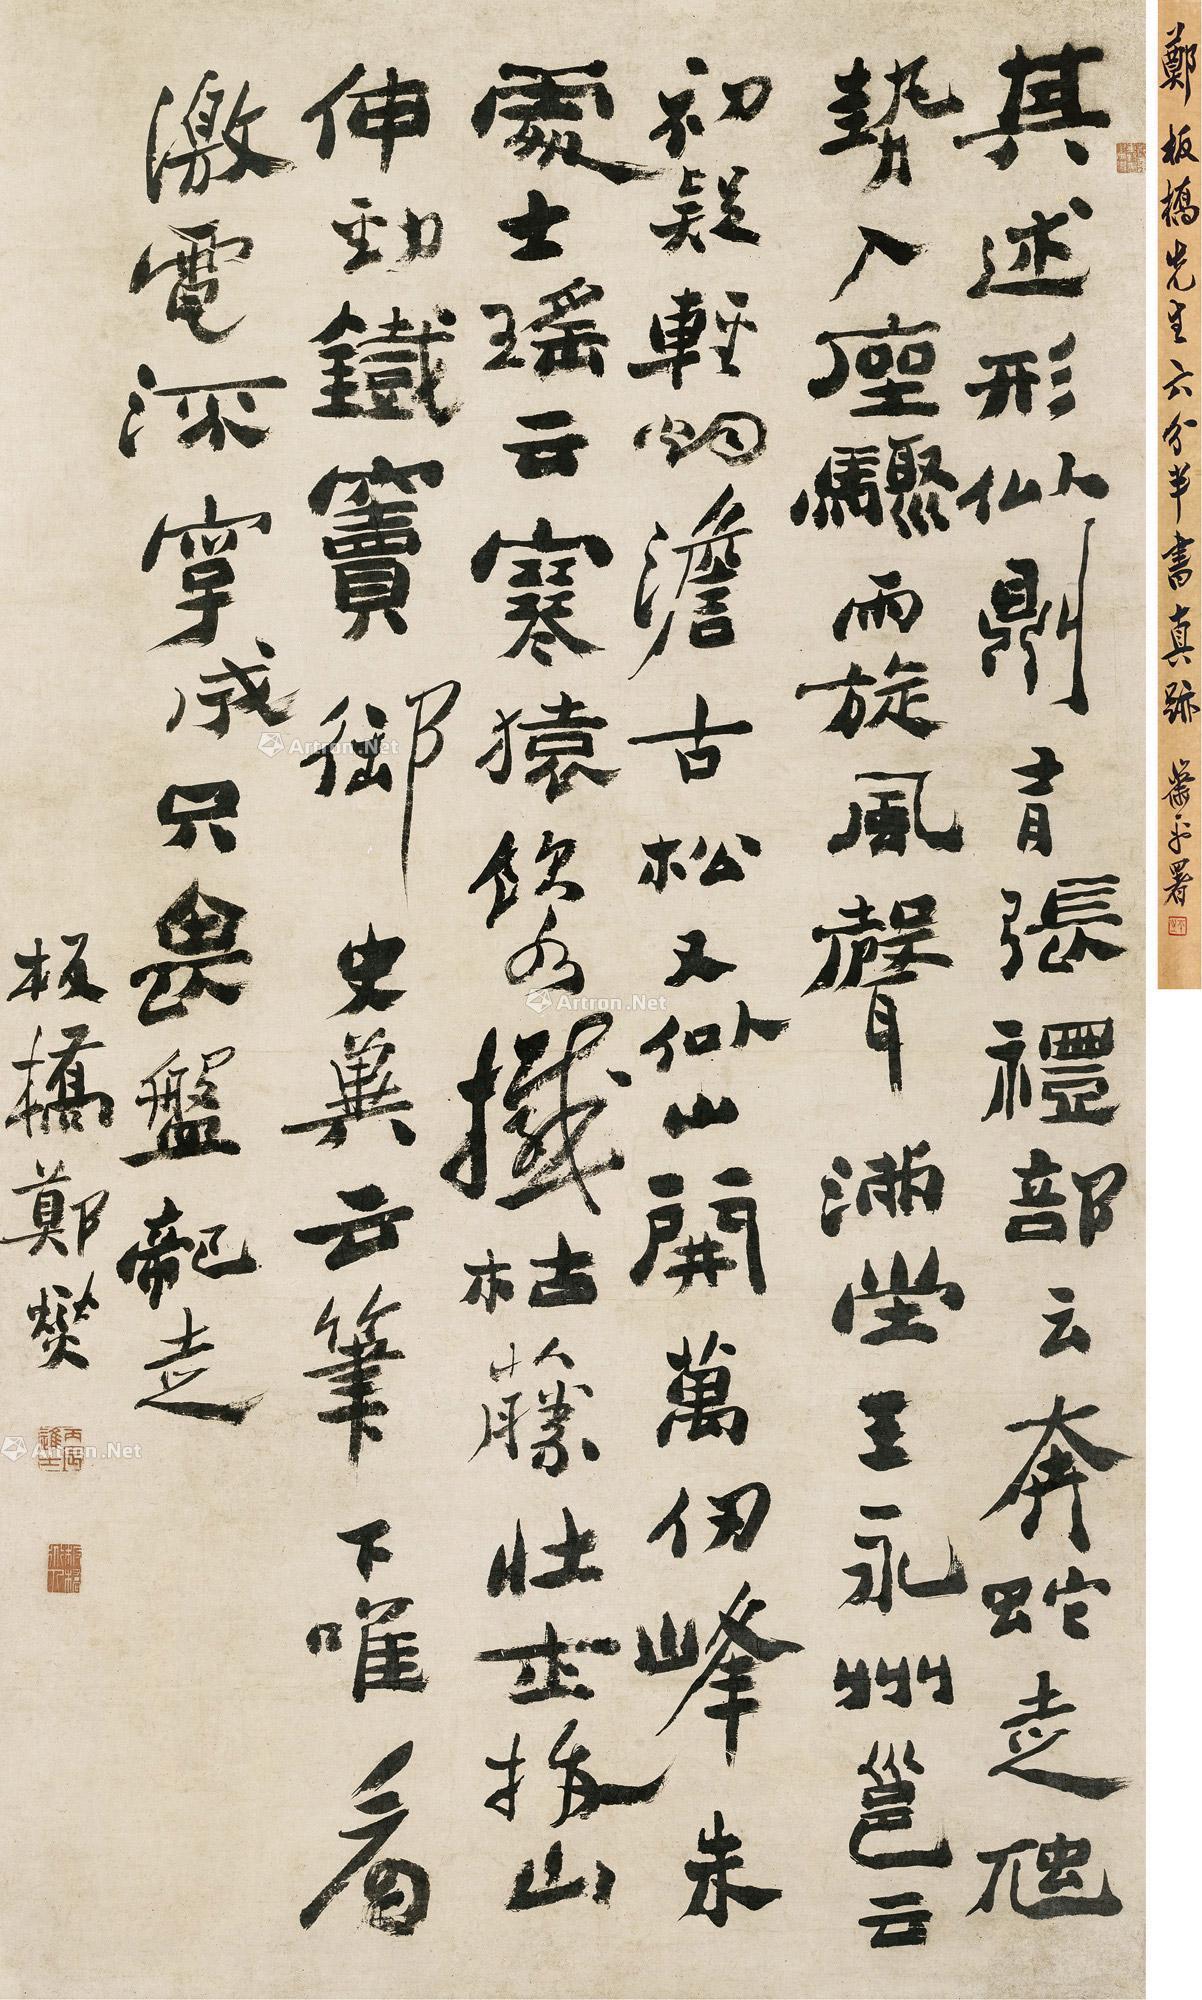 鄭板橋先生六分半書真跡 蕭平署
其述形似則有張禮部云奔蛇走虺
勢入座驟雨旋風聲滿堂王永州邕云
初疑輕煙澹古松又似山開萬仞峰朱
處士瑤云寒猿飲水撼枯藤壯士拔山
伸勁鐵竇御史冀云筆下唯看
激電流字成只畏盤龍走
板橋鄭燮
丙辰進士
Artron.Net
Artron.Net
Artron.Net